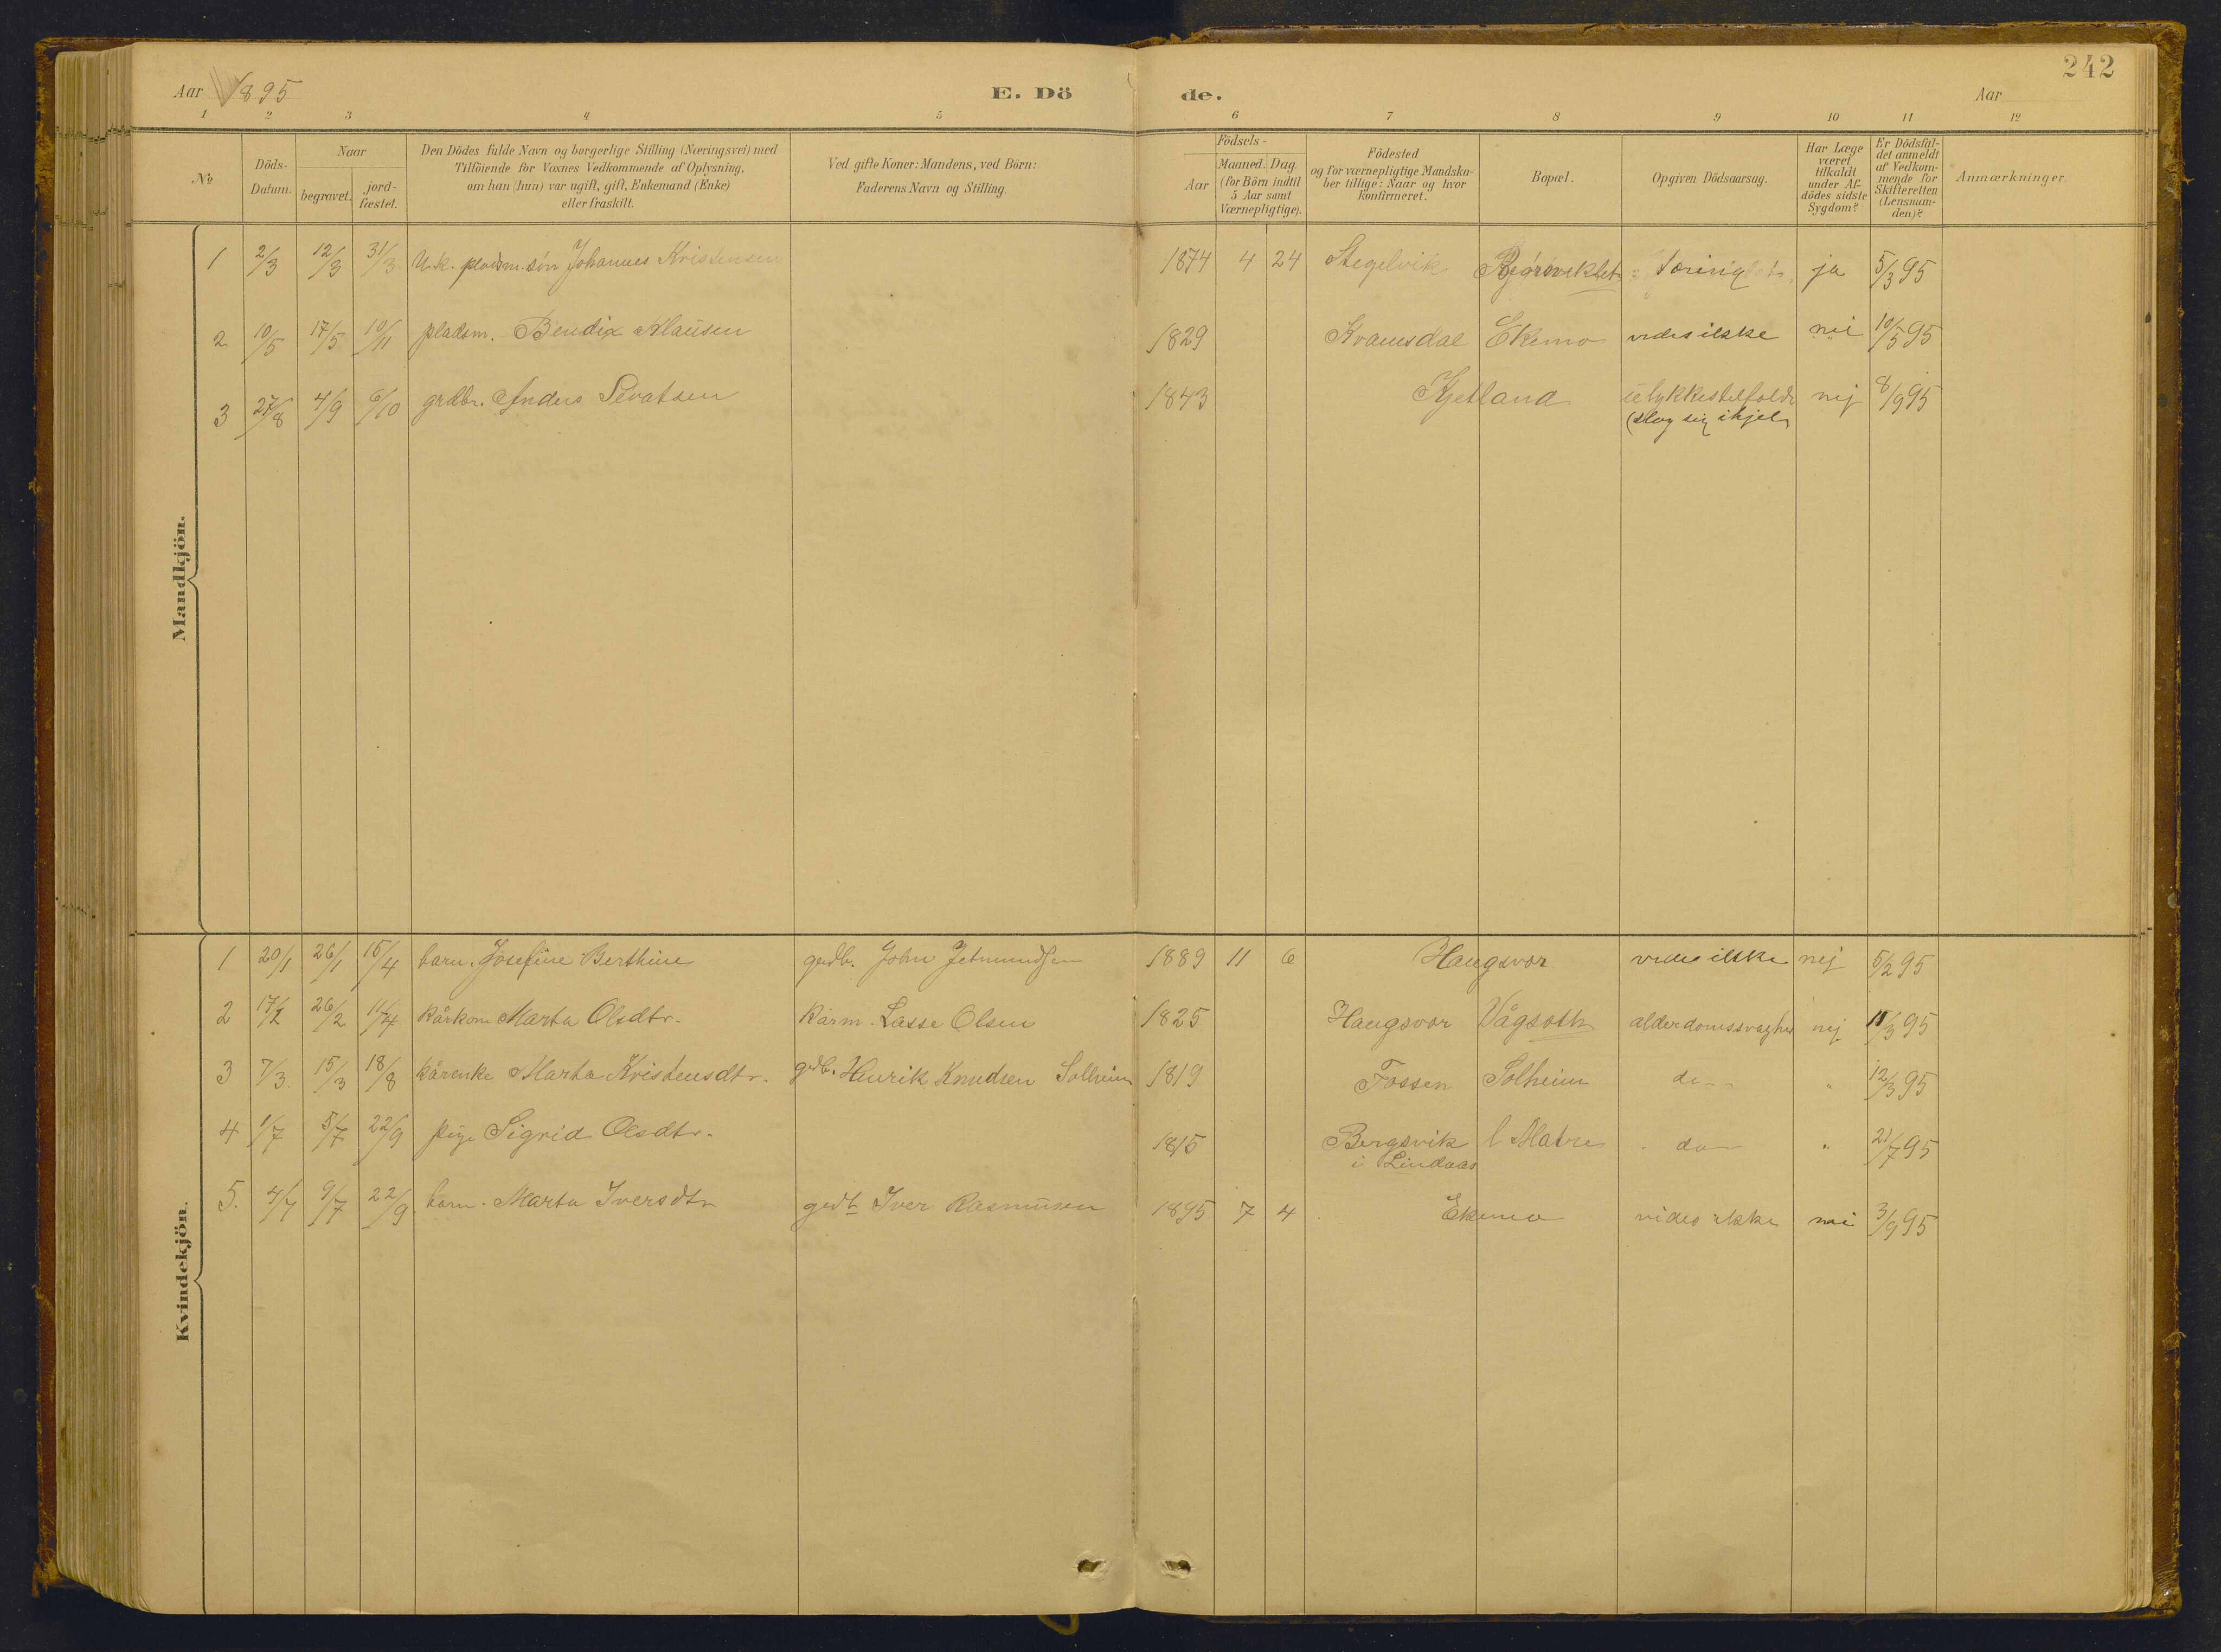 242
Aar 1895
E. Dö
de.
Aar
1 2 3 4 5 6 7 8 9 10 11 12
No
Döds-
Datum.
Naar
begravet.
jord-
fæstet.
Den Dödes fulde Navn og borgerlige Stilling (Næringsvei) med
Tilföiende for Voxnes Vedkommende af Oplysning,
om han (hun) var ugift, gift, Enkemand (Enke)
eller fraskilt.
Ved gifte Koner: Mandens, ved Börn:
Faderens Navn og Stilling.
Födsels-
Aar
Maaned. Dag.
(for Börn indtil
5 Aar samt
Værnepligtige).
Födested
og for værnepligtige Mandska-
ber tillige: Naar og hvor
konfirmeret.
Bopæl.
Opgiven Dödsaarsag.
Har Læge
været
tilkaldt
under Af-
dödes sidste
Sygdom?
Er Dödsfal-
det anmeldt
af Vedkom-
mende for
Skifteretten
(Lensman-
den)?
Anmærkninger.
Mandkjön.
1 2/3 12/3 31/3 U.k. pladsm. sön Johannes Kristensen 1874 4 24 Stegelvik ja 5/3 95
2 10/5 17/5 10/11 pladsm. Bendix Klausen 1829 Kvamsdal Ekemo vides ikke nei 10/5 95
3 27/8 4/9 6/10 grdbr. Anders Sevatsen 1843 Kjetland ulykkestilfælde nej 8/9 95
(slog sig ihjel)
Kvindekjön.
1 20/1 26/1 15/4 barn. Josefine Berthine grdb. John Jetmundsen 1889 11 6 Haugsvær vides ikke nej 5/2 95
2 17/2 26/2 11/4 kårkone Marta Olsdtr. kårm. Lasse Olsen 1825 Haugsvær alderdomssvaghed nej 11/3 95
3 7/3 15/3 18/8 kårenke Marta Kristensdtr. grdb. Henrik Knudsen Solheim 1819 Fossen Solheim do - " 12/3 95
4 1/7 5/7 22/9 pige Sigrid Olsdtr. 1815 Bergsvik Matre - do - " 21/7 95
i Lindaas
5. 4/7 9/7 22/9 barn. Marta Iversdtr grdb Iver Rasmussen 1895 7 4 Ekemo vides ikke nei 3/9 95